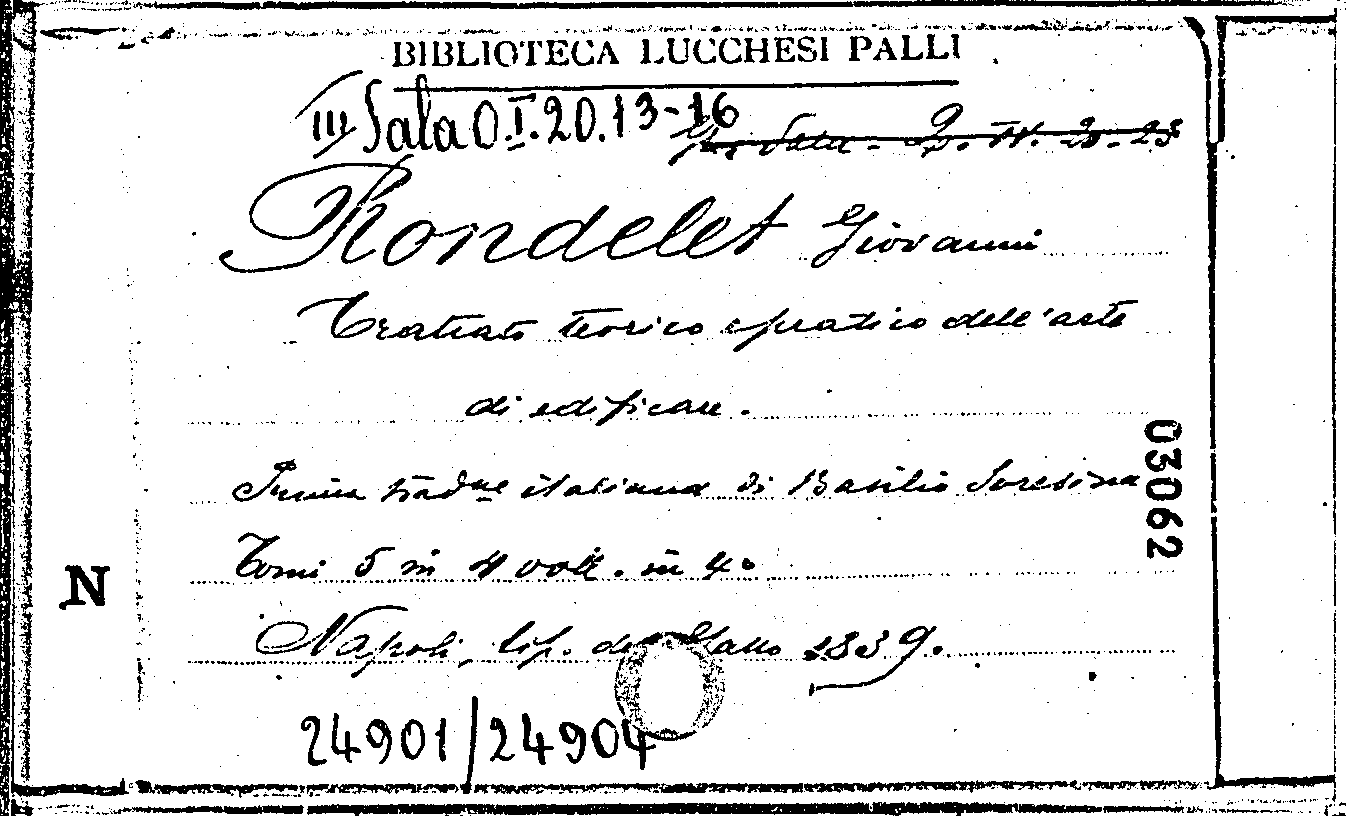 BIBLIOTECA LUCCHESI PALLI
III Sala O.I.20.13-16
Sala - 20-23
Rondelet Giovanni
Trattato teorico e pratico dell'arte
di edificare.
Prima tradune italiana di Basilio Soresina
Tomi 5 in 4 voll. in 4o
Napoli, tip. del 1839.
24901/24904
03062
N